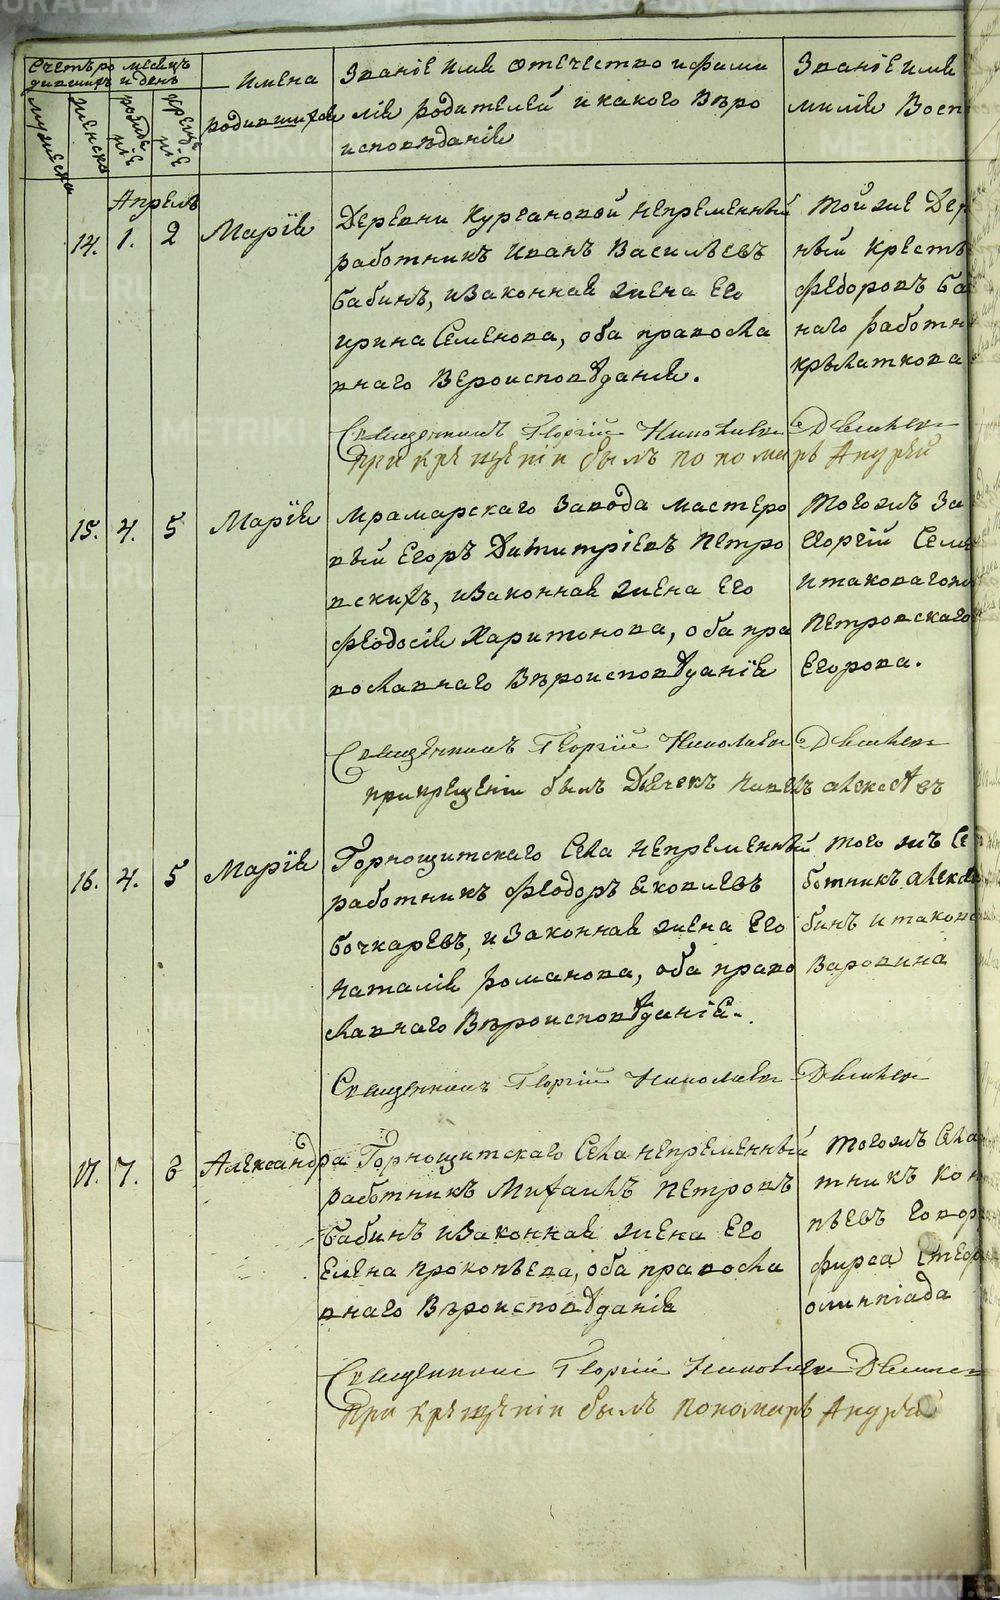 Счетъ ро
дившихъ
месецъ
и день
мужеска
женска
рожде
ніе
креще
ніе
имена
родившихся
Званіе имя отечество и фами
лія родителей и какого Вѣро
исповѣданія
Званіе имя
милія Восп
Апрель
14. 1. 2 Марія
Деревни Кургановой непременный
работникъ Иванъ Васильевъ
бабинъ, и Законная жена Его
ирина Семенова, оба правосла
внаго Вероисповѣданія.
Тойже Дер
ный Кресть
федоровъ ба
наго работн
крылаткова
Священникъ Георгій Николаевъ
При крещеніи былъ пономарь Андрей
15. 4. 5 Марія
Мрамарскаго Завода мастеро
вый Егоръ Дитмитріевъ Петро
вскихъ, и Законная жена Его
Феодосія Харитонова, оба пра
вославнаго Вѣроисповѣданія
Тогожъ За
Георгій Семе
Петровскаго
Егорова.
Священникъ Георгій Николаевъ
при крещеніи былъ Дьечекъ Павелъ алексеевъ
16. 4. 5 Марія
Горнощитскаго Села непременный
работникъ феодоръ яковлевъ
бочкаревъ, и Законная жена Его
Наталія Романова, оба право
славнаго Вѣроисповѣданія.
того жъ Се
ботникъ алексе
бинъ и таково
Варвина
Священникъ Георгій Николаевъ
17. 7. 8 Александра
Горнощитскаго Села непременный
работникъ Михаилъ Петровъ
бабинъ и Законная жена Его
Елена прокопьева, оба правосла
внаго Вѣроисповѣданія
Тогожъ Села
тникъ кон
фирса Егор
олимпіада
Священникъ Георгій Николаевъ
При крещеніи былъ пономарь Андрей
METRIKI.GASO-URAL.RU